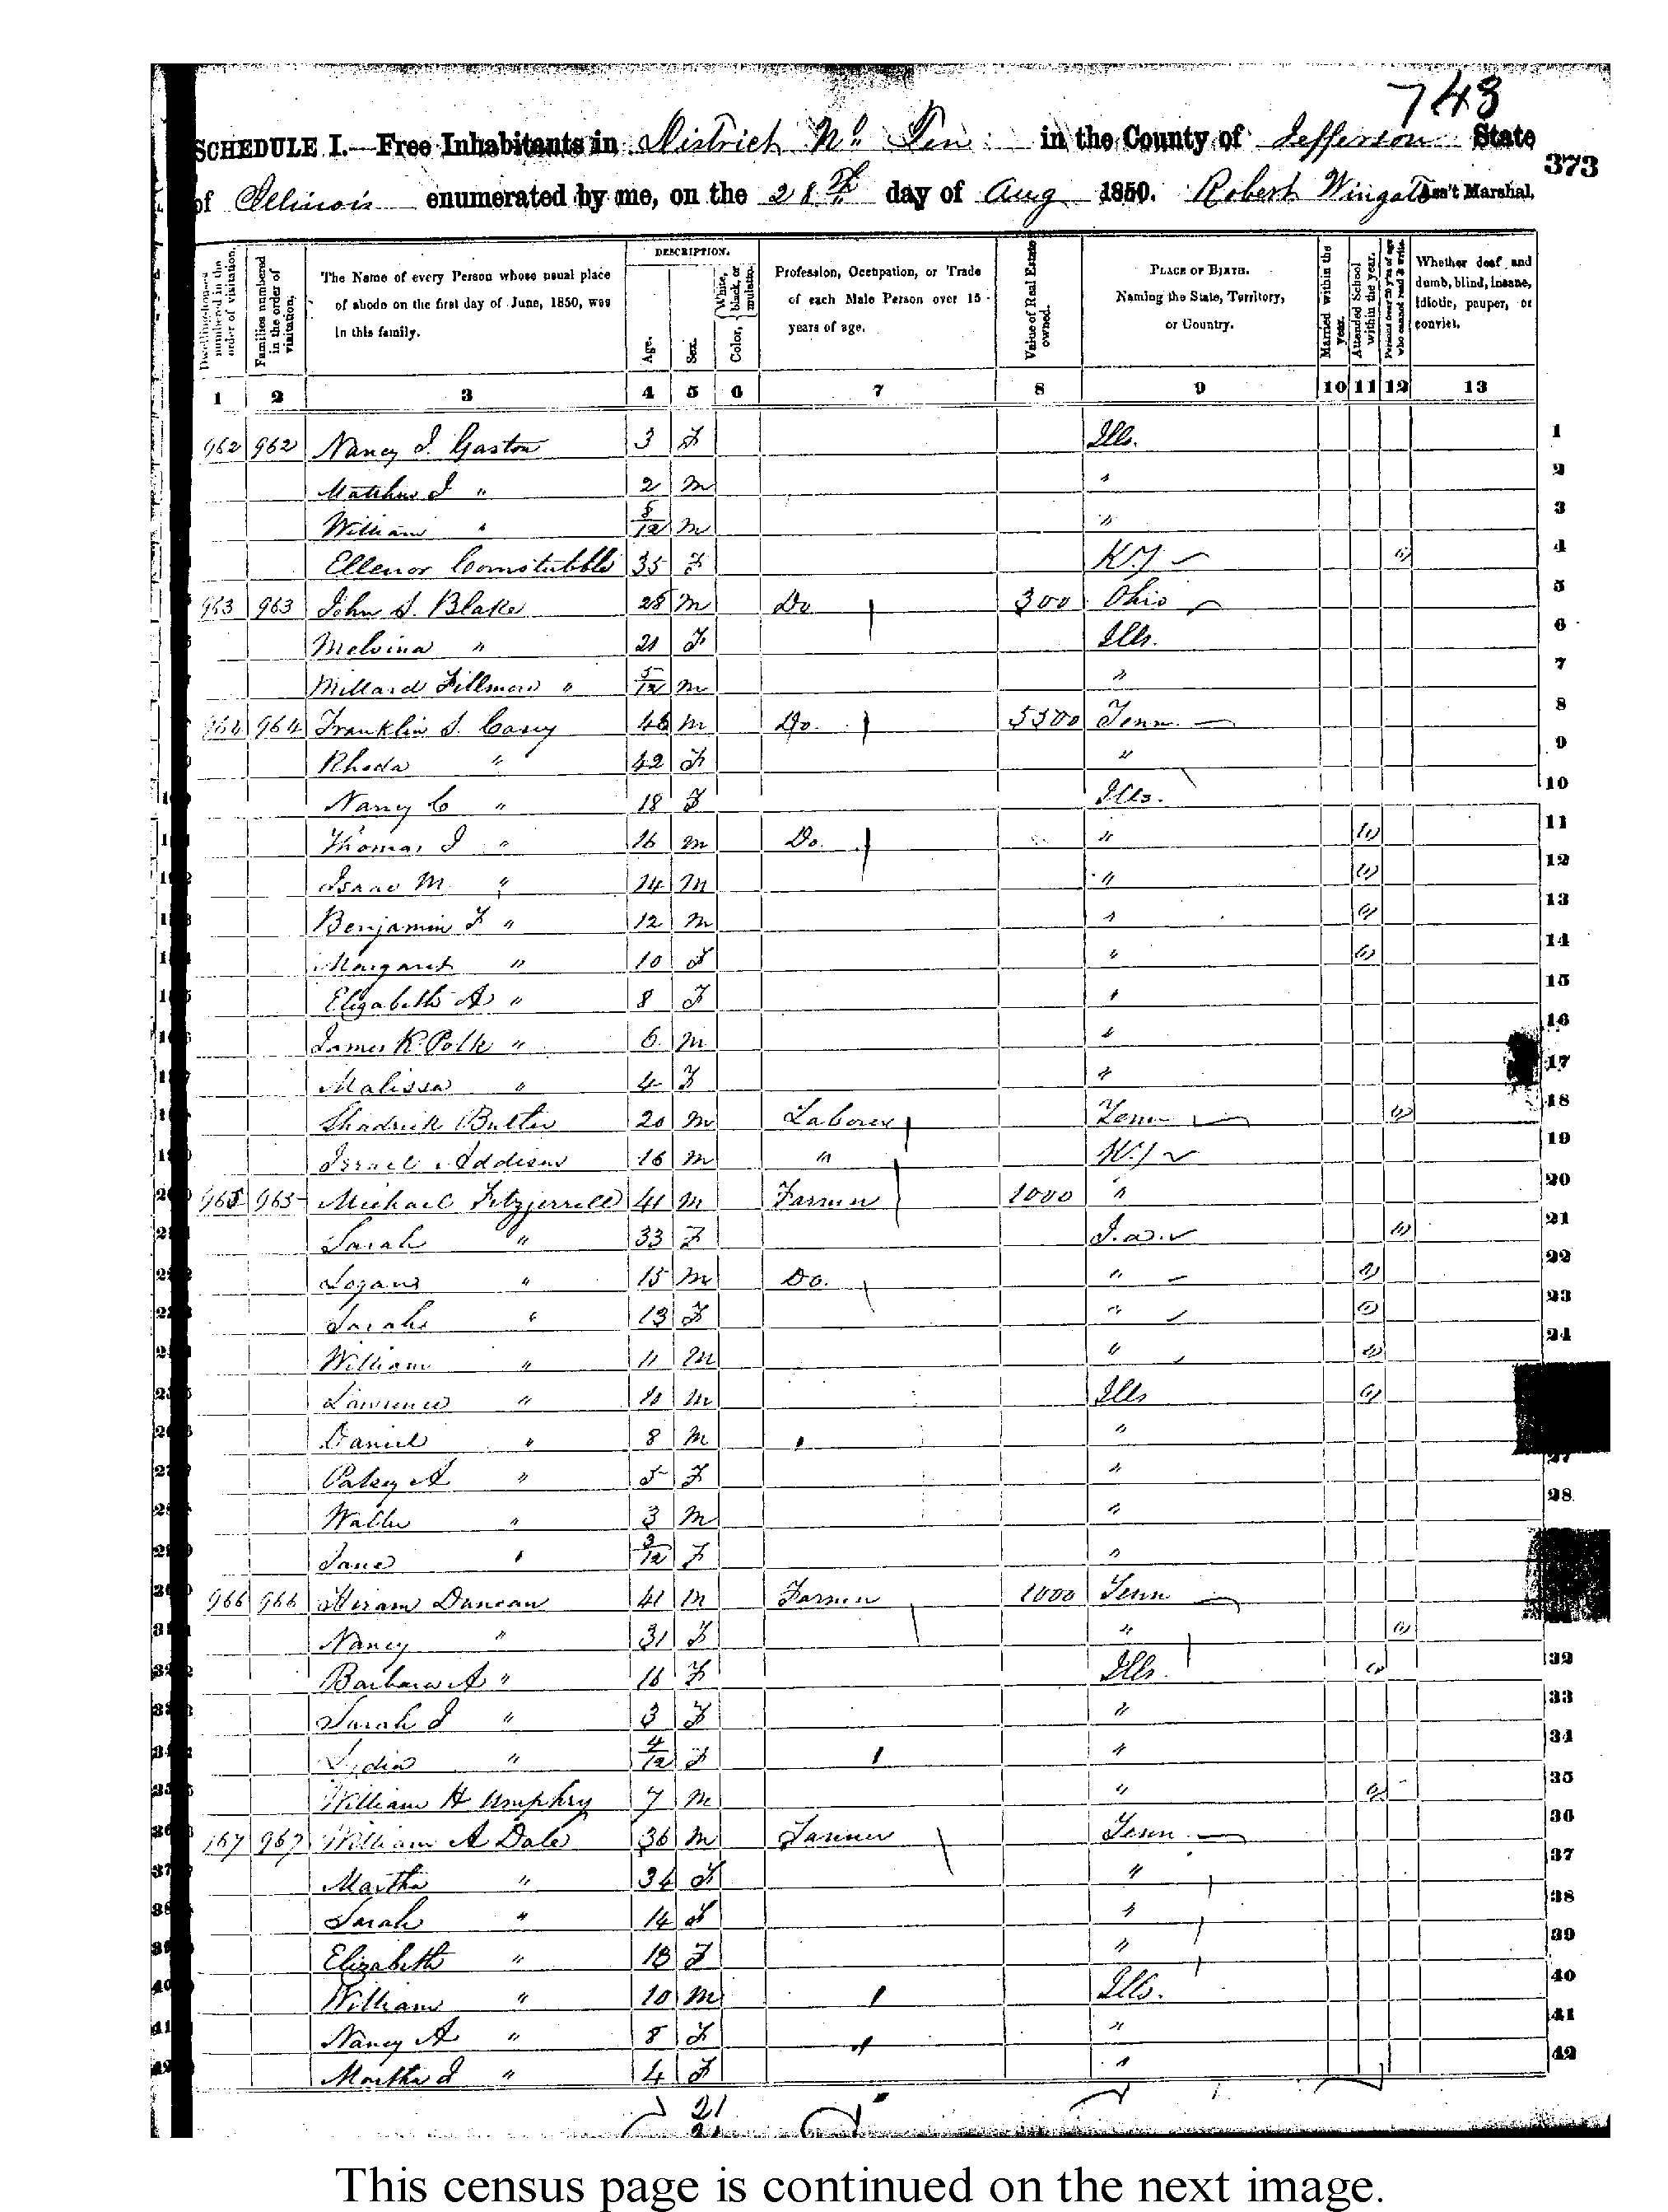 743
SCHEDULE I.—Free Inhabitants in District No. Ten in the County of Jefferson State
373
of Illinois enumerated by me, on the 28th day of Aug 1850. Robert Wingate Ass't Marshal.
Dwelling-houses numbered in the order of visitation. Families numbered in the order of visitation. The Name of every Person whose usual place of abode on the first day of June, 1850, was in this family. DESCRIPTION. Age. Sex. Color, White, black, or mulatto. Profession, Occupation, or Trade of each Male Person over 15 years of age. Value of Real Estate owned. PLACE OF BIRTH. Naming the State, Territory, or Country. Married within the year. Attended School within the year. Persons over 20 y'rs of age who cannot read & write. Whether deaf and dumb, blind, insane, idiotic, pauper, or convict.
1 2 3 4 5 6 7 8 9 10 11 12 13
962 962 Nancy J. Gaston 3 F Ills. 1
Matthew J " 2 M " 2
William " M " 3
Ellenor 35 F K.y 4
963 963 John S. Blake 28 M Do 300 Ohio 5
Melvina " 21 F Ills. 6
Millard Fillmore " 5/12 M " 7
964 964 Franklin S. Casey 46 M Do. 5500 Tenn. 8
Rhoda " 42 F " 9
Nancy C " 18 F Ills. 10
Thomas J " 16 M Do. " 11
Isaac M. " 14 M " 12
Benjamin F " 12 M " 13
Margaret " 10 F " 14
Elizabeth A " 8 F " 15
James K. Polk " 6 M " 16
Malissa " 4 F " 17
Shadrick Butler 20 M Laborer Tenn 18
Israel Addison 16 M " K.y 19
965 965 Michael Fitzjerrell 41 M Farmer 1000 " 20
Sarah " 33 F I.a. 21
Logan " 15 M Do. " 22
Sarah " 13 F " 23
William " 11 M " 24
Lawrence " 10 M Ills
Daniel " 8 M "
Patsy A " 5 F " 27
Walter " 3 M " 28
Jane " 3/12 F "
966 966 Hiram Duncan 41 M Farmer 1000 Tenn
Nancy " 31 F "
Barbara A " 16 F Ills. 32
Sarah J " 3 F " 33
Lydia " 4/12 F " 34
William H Umphry 7 M " 35
967 967 William A Dale 36 M Farmer Tenn. 36
Martha " 34 F " 37
Sarah " 14 F " 38
Elizabeth " 13 F " 39
William " 10 M Ills. 40
Nancy A " 8 F " 41
Martha J " 4 F " 42
21
This census page is continued on the next image.